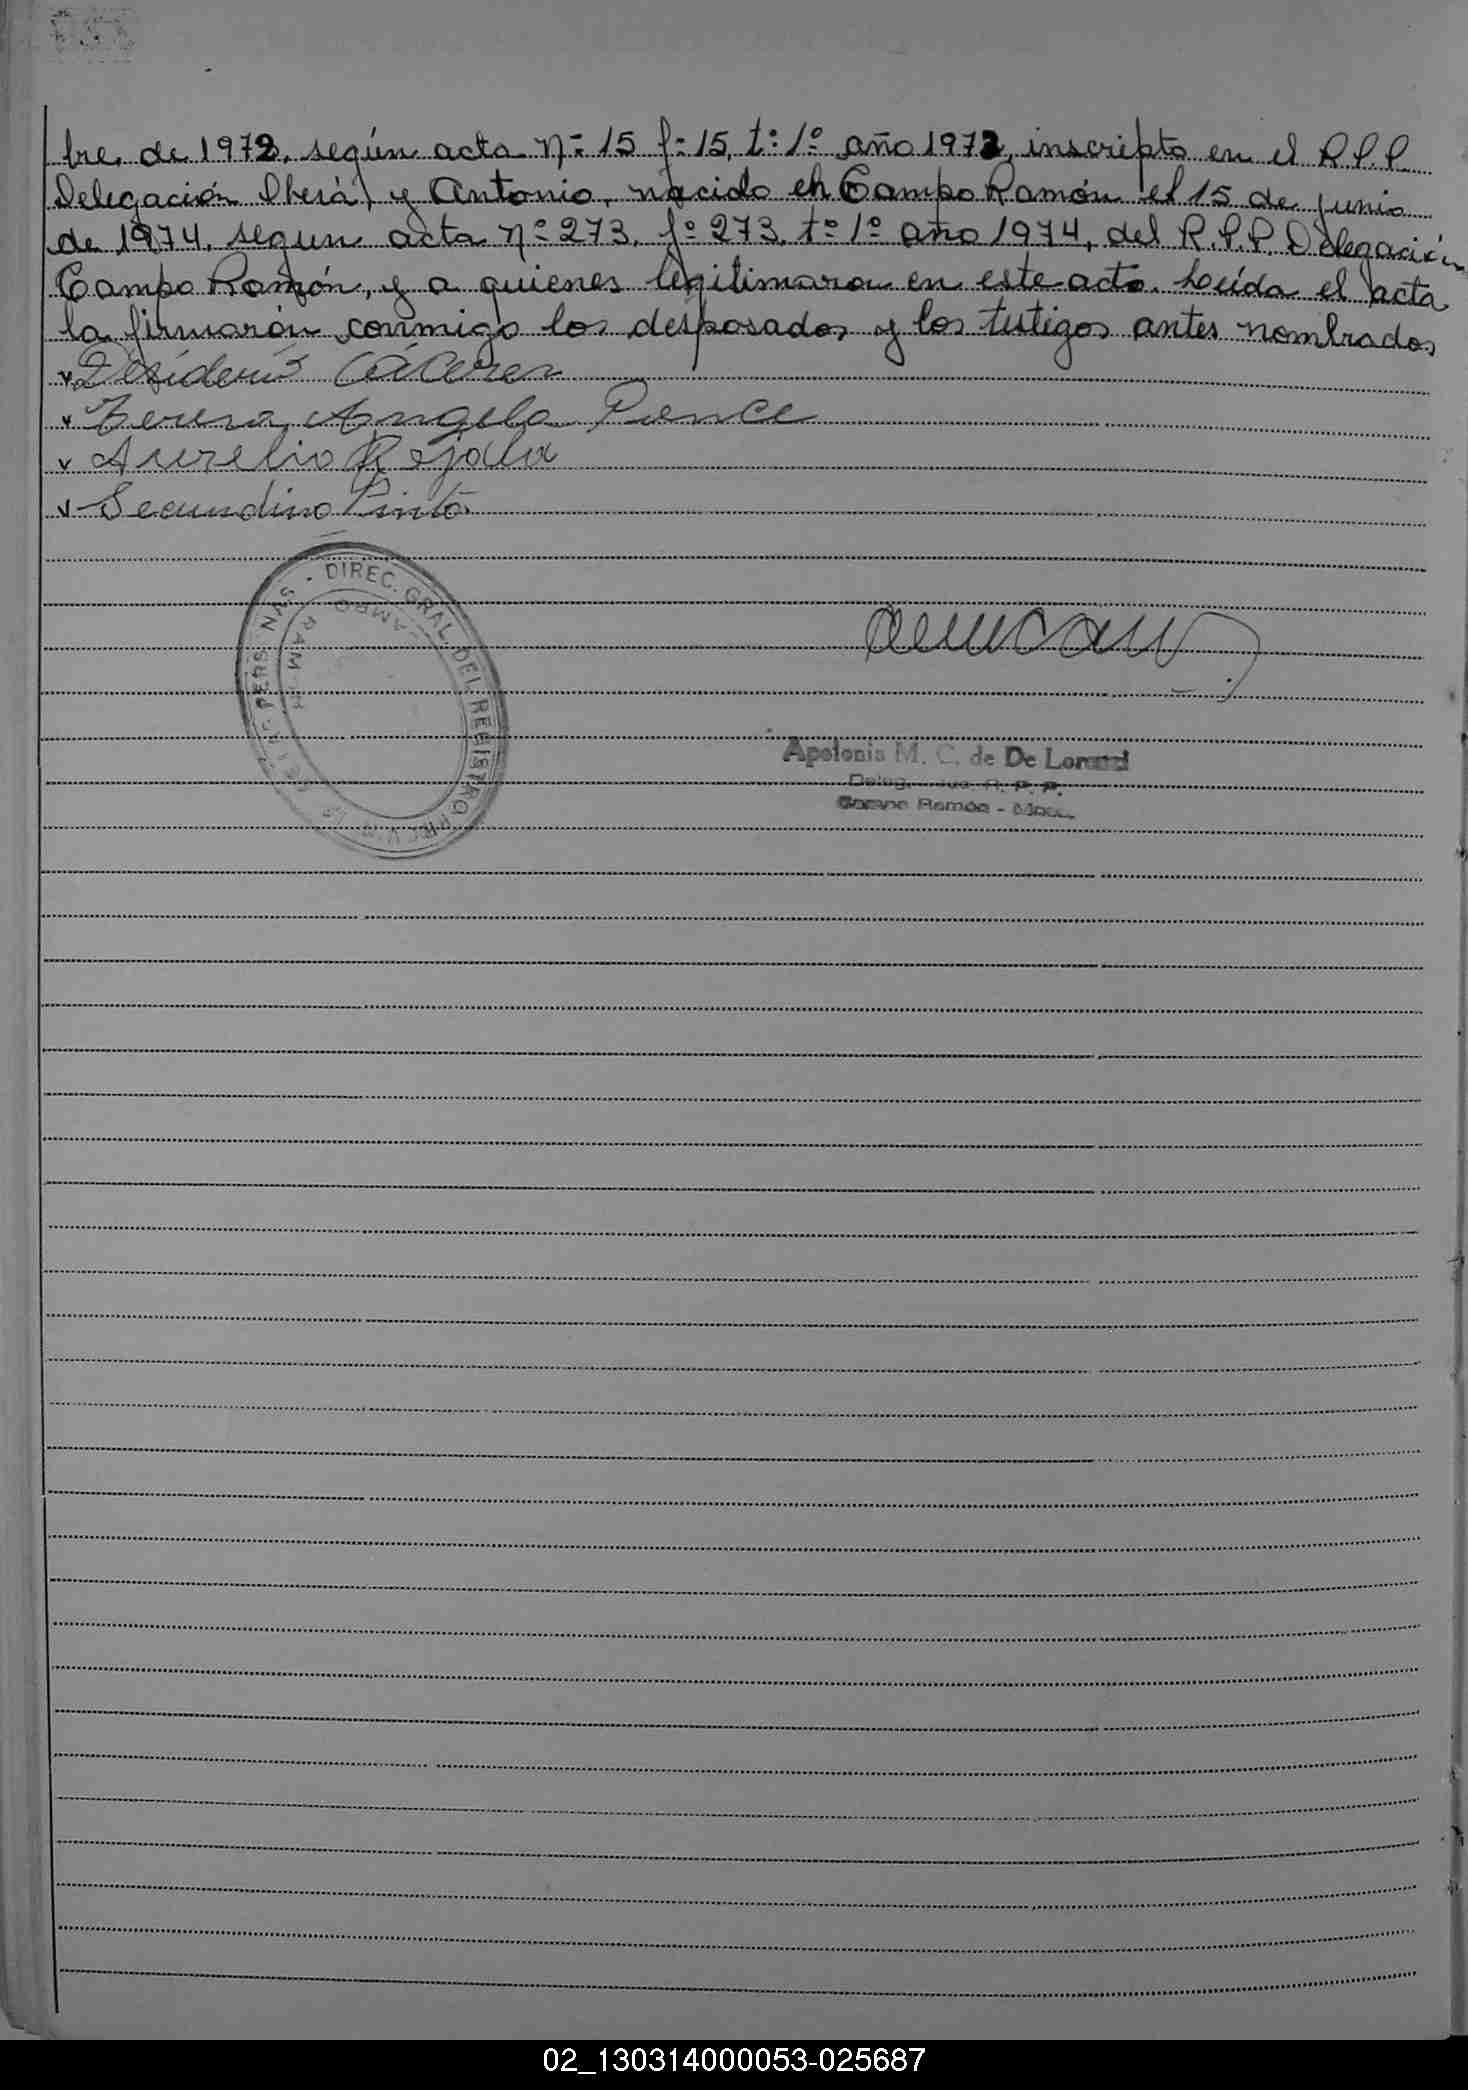 bre de 1972, según acta nº 15 fº 15, tº 1º año 1972, inscripto en el R.P.P.
Delegación Oberá, y Antonio, nacido en Campo Ramón el 15 de junio
de 1974, segun acta nº 273, fº 273, tº 1º año 1974, del R.P.P. Delegación
Campo Ramón, y a quienes legitimaron en este acto. Leída el acta
la firmarón conmigo los desposados y los testigos antes nombrados
Desiderio Cáceres
Teresa Angela Ponce
Aurelio Rojala
Secundino Pinto
DIREC. GRAL. DEL REGISTRO PROV. DE LAS PERSONAS
CAMPO RAMON
Apolonia M. C. de De Lorenzi
Deleg. R. P. P.
Campo Ramón - Mnes.
02_130314000053-025687